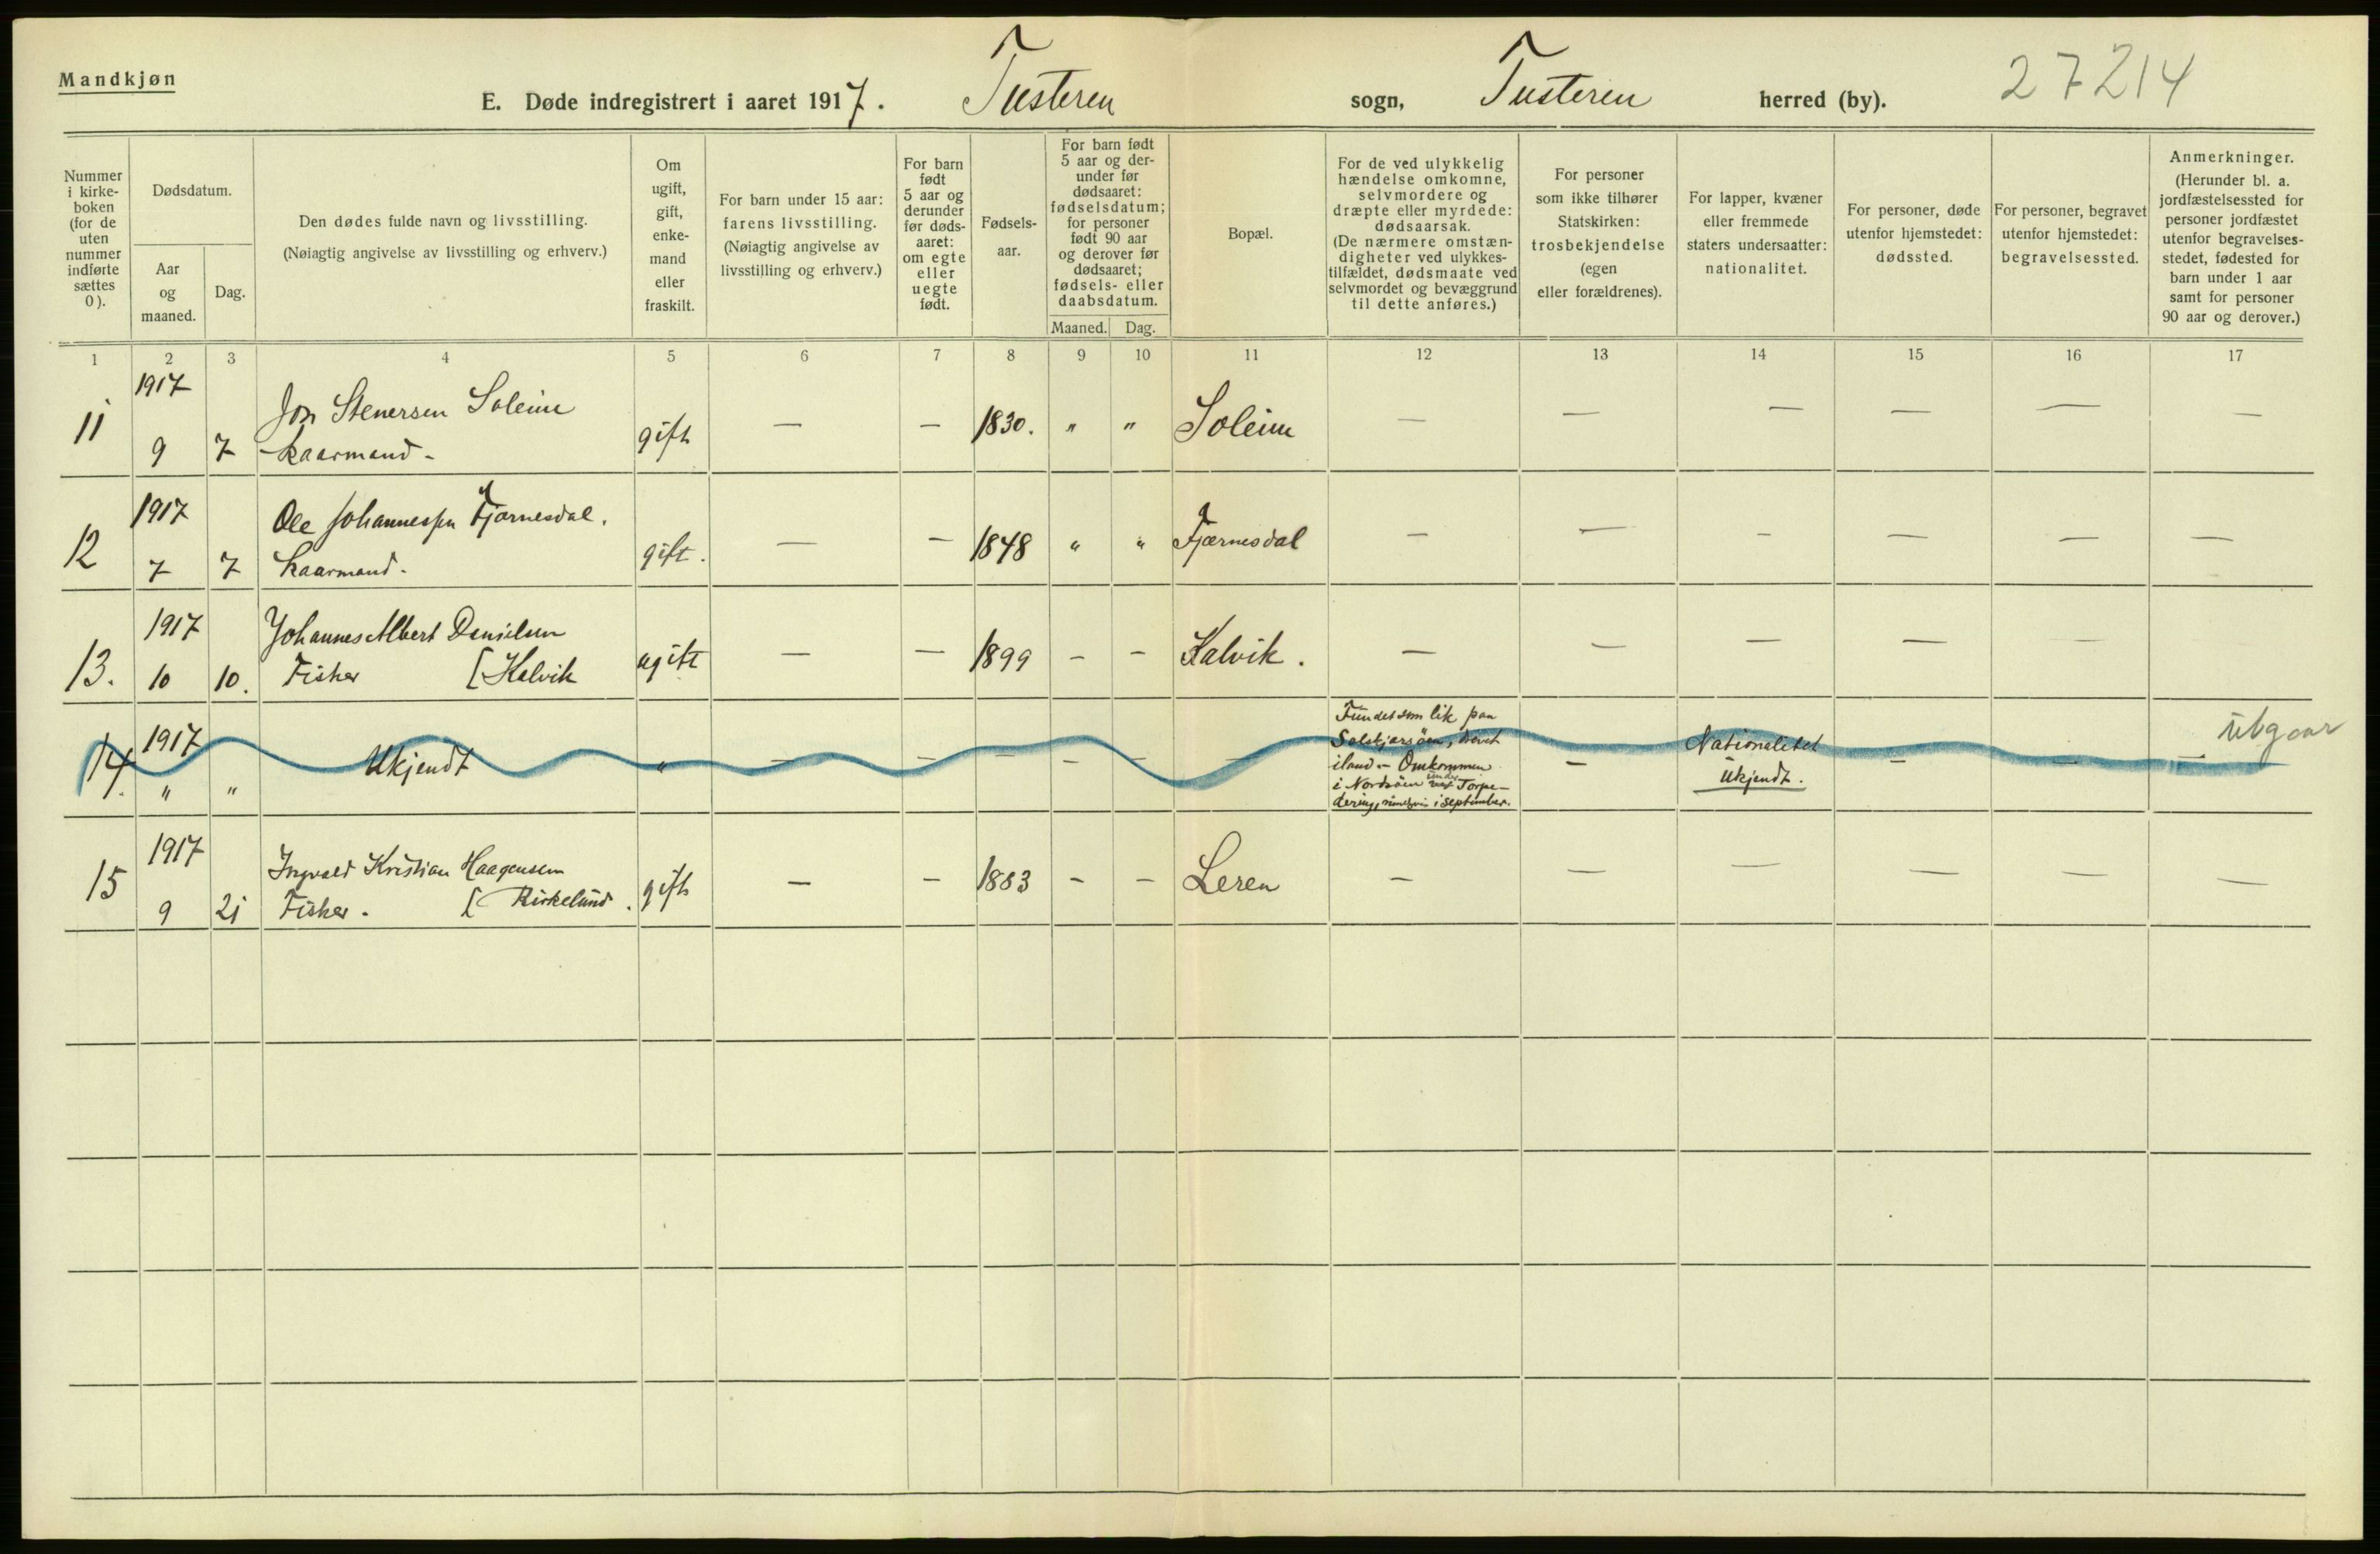 Mandkjøn
E. Døde indregistrert i aaret 1917. Tusteren sogn, Tusteren herred (by). 27214
Nummer i kirke- boken (for de uten nummer indførte sættes 0).
Dødsdatum.
Aar og maaned.
Dag.
Den dødes fulde navn og livsstilling.
(Nøiagtig angivelse av livsstilling og erhverv.)
Om ugift, gift, enke- mand eller fraskilt.
For barn under 15 aar: farens livsstilling. (Nøiagtig angivelse av livsstilling og erhverv.)
For barn født 5 aar og derunder før døds- aaret: om egte eller uegte født.
Fødsels- aar.
For barn født 5 aar og der- under før dødsaaret: fødselsdatum; for personer født 90 aar og derover før dødsaaret; fødsels- eller daabsdatum.
Maaned. Dag.
Bopæl.
For de ved ulykkelig hændelse omkomne, selvmordere og dræpte eller myrdede: dødsaarsak. (De nærmere omstæn- digheter ved ulykkes- tilfældet, dødsmaate ved selvmordet og bevæggrund til dette anføres.)
For personer som ikke tilhører Statskirken: trosbekjendelse (egen eller forældrenes).
For lapper, kvæner eller fremmede staters undersaatter: nationalitet.
For personer, døde utenfor hjemstedet: dødssted.
For personer, begravet utenfor hjemstedet: begravelsessted.
Anmerkninger. (Herunder bl. a. jordfæstelsessted for personer jordfæstet utenfor begravelses- stedet, fødested for barn under 1 aar samt for personer 90 aar og derover.)
1 2 3 4 5 6 7 8 9 10 11 12 13 14 15 16 17
1917
Jon Stenersen Soleim
11 9 7 kaarmand - gift — — 1830. " " Soleim — — — — — —
1917
Ole Johannessen Fjærnesdal.
12 7 7 kaarmand. gift. — — 1848 " " Fjærnesdal — — — — — —
1917
Johannes Albert Danielsen
13. 10 10. Fisker [Kalvik ugift — — 1899 - - Kalvik. — — — — —
Fundet som lik paa
1917 Solskjærsöen, drevet Nationalitet utgaar
14. " " Ukjendt " — — — — — — iland - Omkommen — Ukjendt. — — —
i Nordsöen under Torpe-
dering, i september.
1917
Ingvald Kristian Haagensen
15 9 21 Fisker. [Kirkelund. gift — — 1883 - - Leren — — — — — —